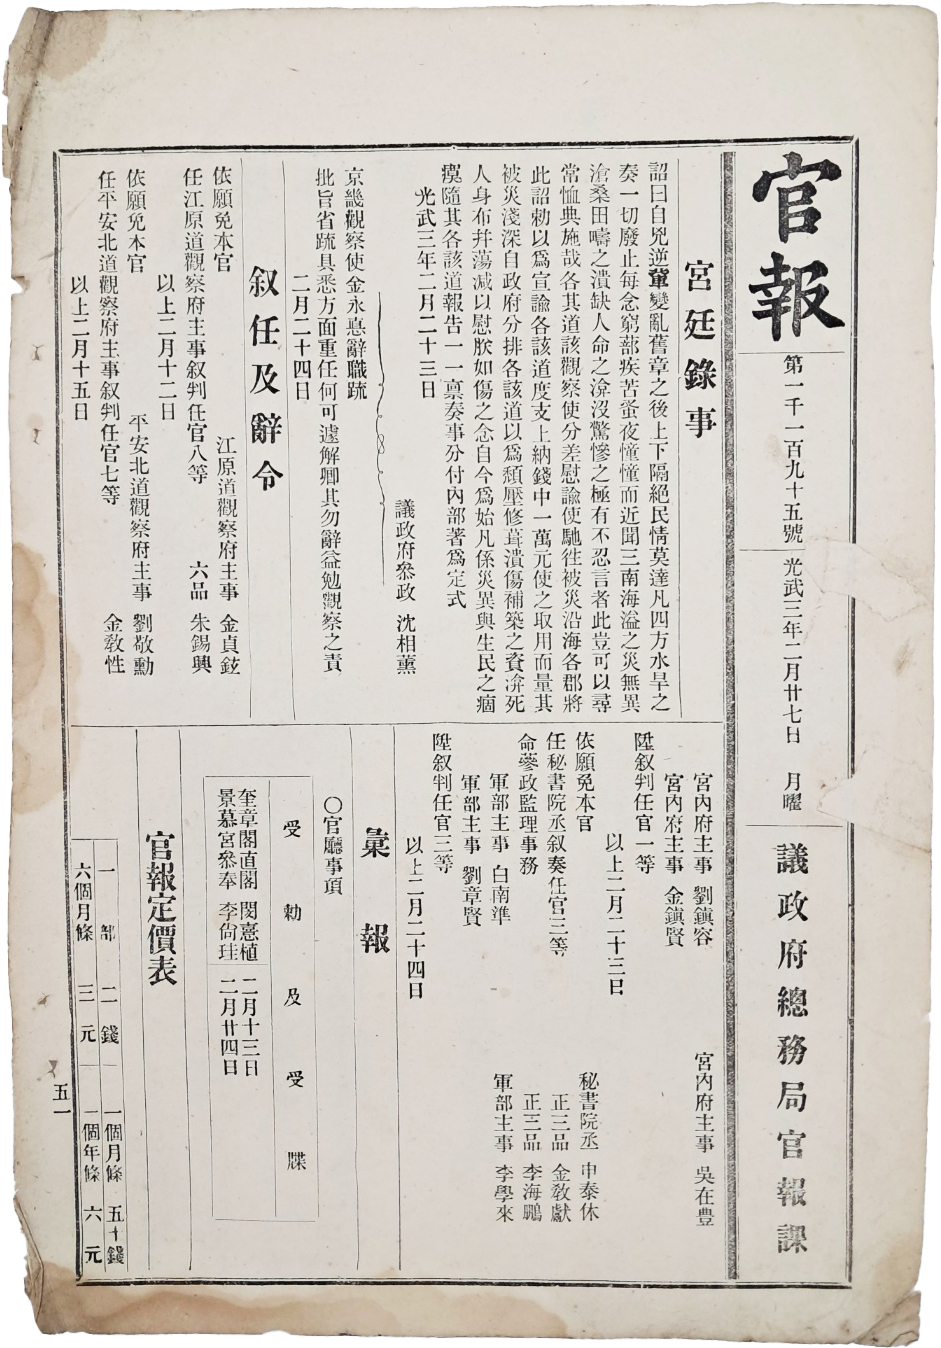 官報
第一千一百九十五號
光武三年二月廿七日 月曜
議政府總務局官報課
宮廷錄事
詔曰自兇逆輩變亂舊章之後上下隔絕民情莫達凡四方水旱之
奏一切廢止每念窮蔀疾苦蚤夜憧憧而近聞三南海溢之災無異
滄桑田疇之潰缺人命之渰沒驚慘之極有不忍言者此豈可以尋
常恤典施哉各其道該觀察使分差慰諭使馳徃被災沿海各郡將
此詔勅以爲宣諭各該道度支上納錢中一萬元使之取用而量其
被災淺深自政府分排各該道以爲頹壓修葺潰傷補築之資渰死
人身布幷蕩减以慰朕如傷之念自今爲始凡係災異與生民之痼
瘼隨其各該道報告一一禀奏事分付內部著爲定式
光武三年二月二十三日
議政府叅政 沈相薰
京畿觀察使金永悳辭職疏
批旨省疏具悉方面重任何可遽解卿其勿辭益勉觀察之責
二月二十四日
叙任及辭令
江原道觀察府主事 金貞鉉
依願免本官
六品 朱錫興
任江原道觀察府主事叙判任官八等
以上二月十二日
平安北道觀察府主事 劉敬勳
依願免本官
金敎性
任平安北道觀察府主事叙判任官七等
以上二月十五日
宮內府主事 吳在豊
宮內府主事 劉鎭容
宮內府主事 金鎭賢
陞叙判任官一等
以上二月二十三日
秘書院丞 申泰休
依願免本官
正三品 金敎獻
任秘書院丞叙奏任官三等
正三品 李海鵬
命蔘政監理事務
軍部主事 李學來
軍部主事 白南準
軍部主事 劉章賢
陞叙判任官三等
以上二月二十四日
彙報
〇官廳事項
受勅及受牒
奎章閣直閣 閔憙植 二月十三日
景慕宮叅奉 李尙珪 二月廿四日
官報定價表
一部 二錢 一個月條 五十錢
六個月條 三元 一個年條 六元
五一